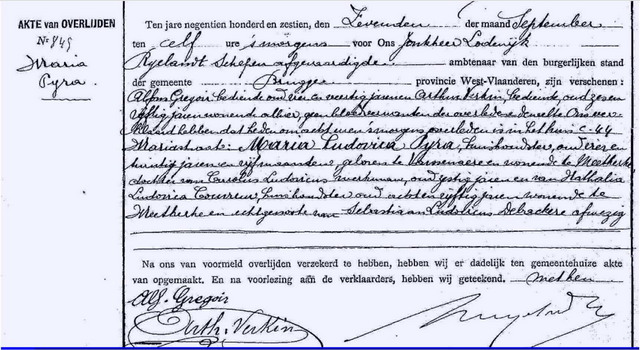 AKTE van OVERLIJDEN
N° 845
Maria
Pyra.
Ten jare negentien honderd en zestien, den Zevenden der maand September
ten elf ure 's morgens voor Ons Jonkheer Lodewijk
Ryelandt Schepen afgevaardigde ambtenaar van den burgerlijken stand
der gemeente Brugge provincie West-Vlaanderen, zijn verschenen:
Alfons Gregoir bediende oud vier en veertig jaren en Arthur Verkin, bediende, oud zes en
vijftig jaren wonende alhier, geen bloedverwanten der overledene dewelke Ons ver-
klaard hebben dat heden om acht uren 's morgens overleden is in het huis C-44
Mariastraat: Maria Ludovica Pyra, huishoudster, oud vier en
twintig jaren en vijf maanden, geboren te en wonende te Meetkerke
dochter van Carolus Ludovicus werkman, oud zestig jaren en van Nathalia
Ludovica huishoudster oud acht en vijftig jaren wonende te
Meetkerke en echtgenote van Sebastiaan Ludovicus Debackere afwezig
Na ons van voormeld overlijden verzekerd te hebben, hebben wij er dadelijk ten gemeentehuize akte
van opgemaakt. En na voorlezing aan de verklaarders, hebben wij geteekend. met hen
Alf. Gregoir
Arth. Verkin